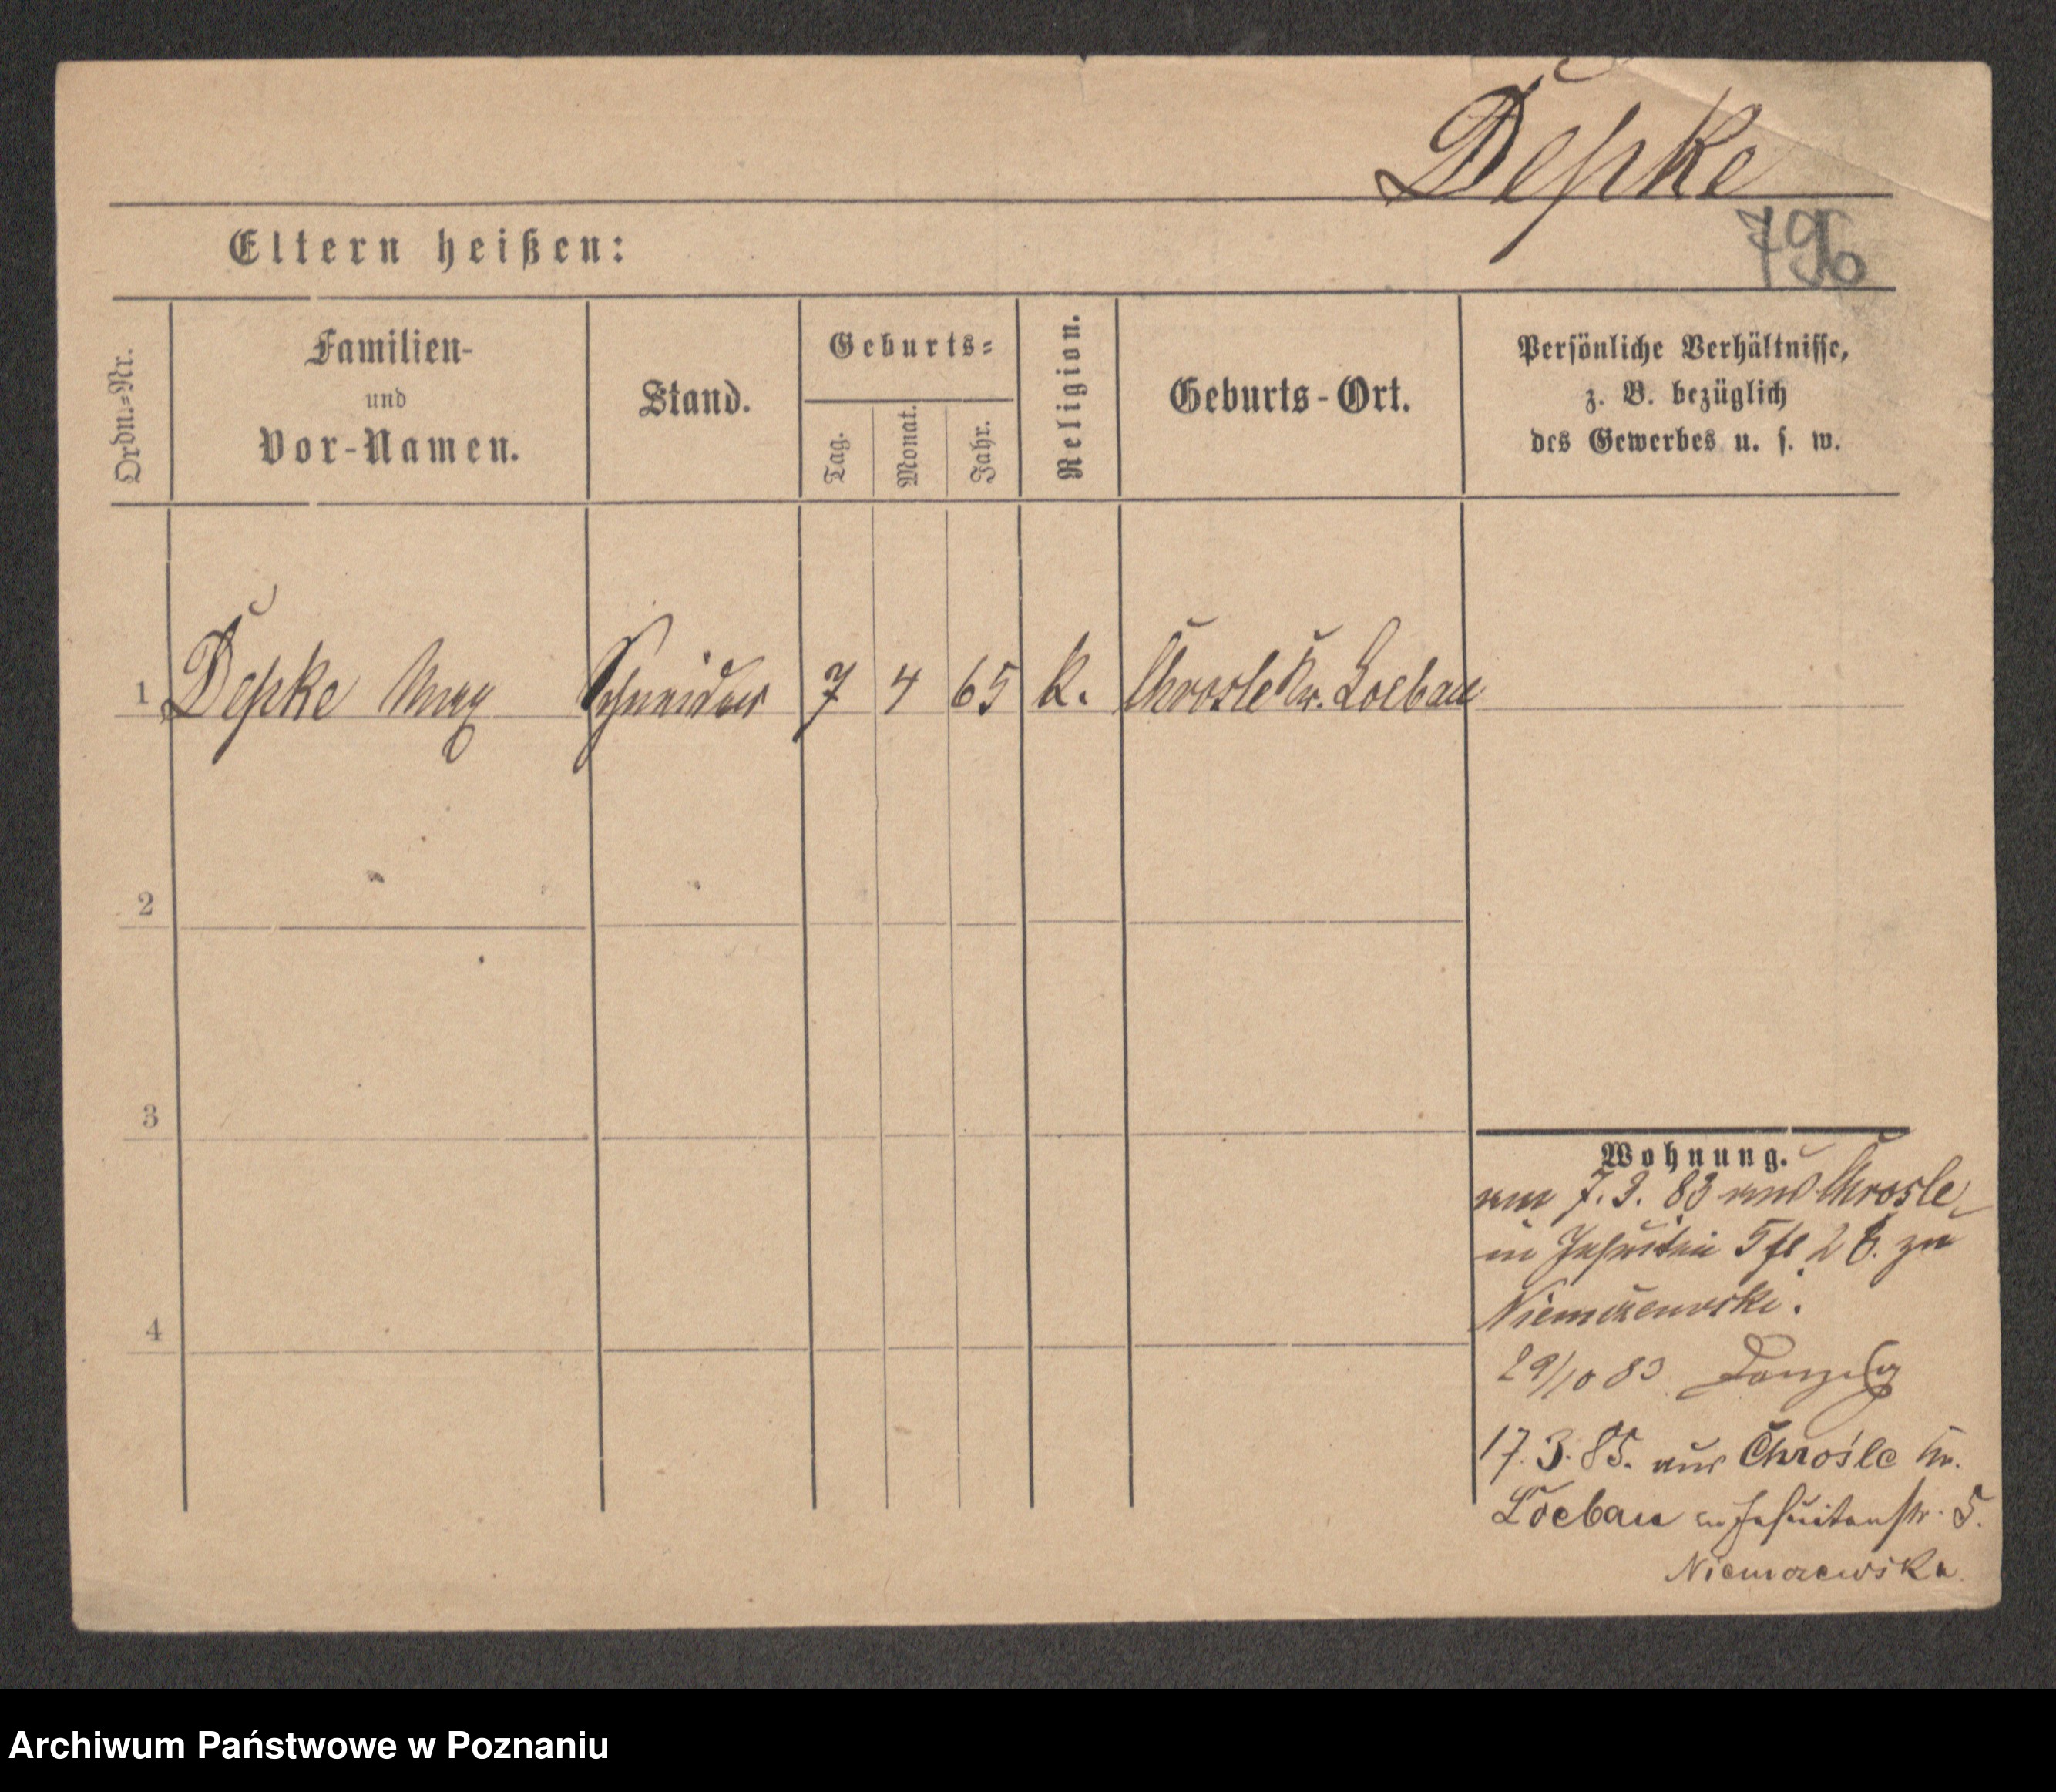 Depke
796
Eltern heißen:
Ordn.=Nr.
Familien-
und
Vor-Namen.
Stand.
Geburts=
Tag.
Monat.
Jahr.
Religion.
Geburts-Ort.
Persönliche Verhältnisse,
z. B. bezüglich
des Gewerbes u. s. w.
1 Depke Max Schneider 7 4 65 k. Chrosle Kr. Loebau
2
3
4
Wohnung.
7. 3. 83 aus Chrosle
in Jesuiten 5 2 zu
Niemczewski.
29/10 83 Danzig
17. 3. 85. aus Chrośle Kr.
Loebau Jesuitenstr. 5.
Niemczewska
Archiwum Państwowe w Poznaniu